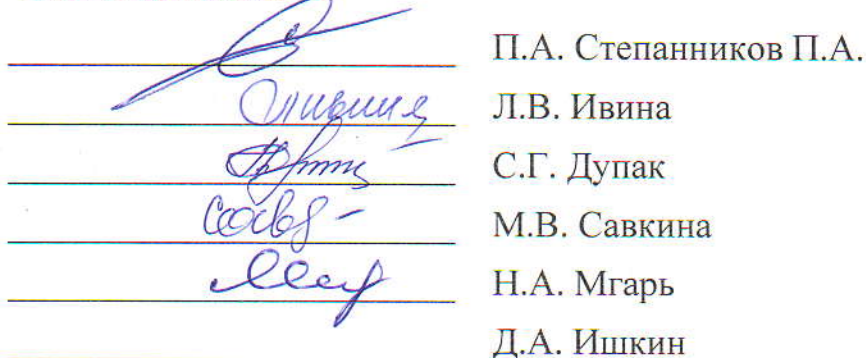 П.А. Степанников П.А.
Л.В. Ивина
С.Г. Дупак
М.В. Савкина
Н.А. Мгарь
Д.А. Ишкин